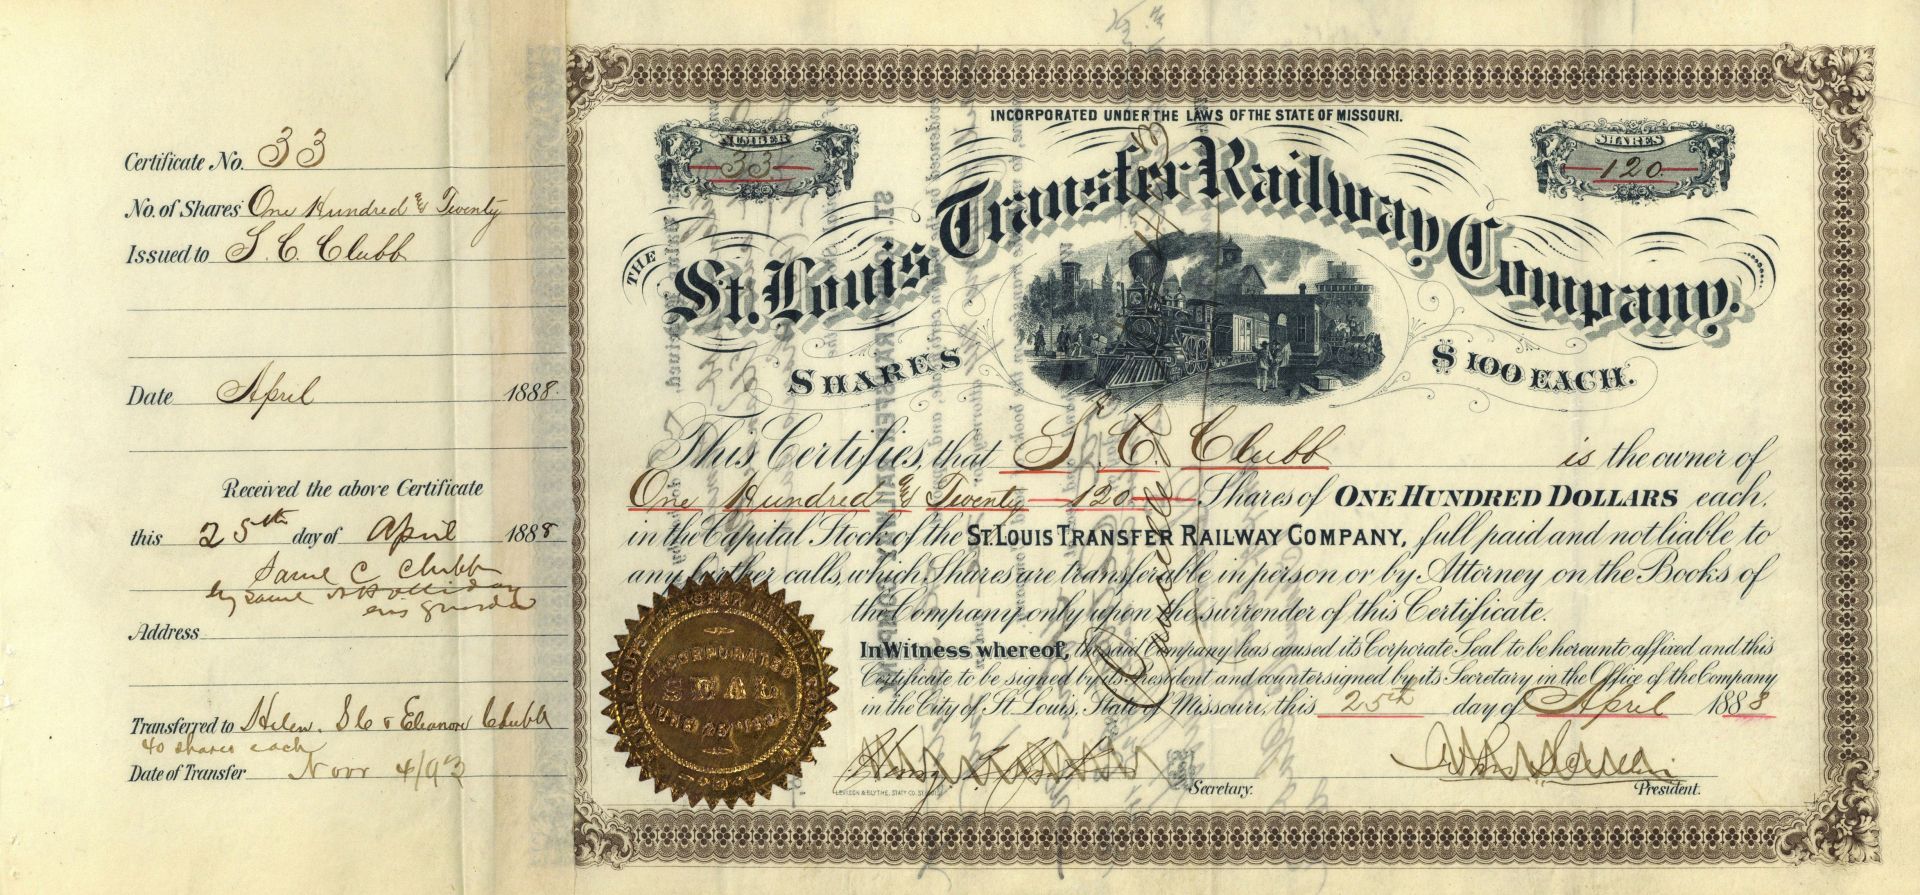 Certificate No. 33
No. of Shares One Hundred & Twenty
Issued to S. C. Clubb
Date April 1888
Received the above Certificate
this 25th day of April 1888
Saml C Clubb
by Saml
Address
Transferred to Helen, S C & Eleanore Clubb
40 shares each
Date of Transfer Novr 4/93
INCORPORATED UNDER THE LAWS OF THE STATE OF MISSOURI.
NUMBER
33
SHARES
120
THE St. Louis Transfer Railway Company.
SHARES $100 EACH.
This Certifies, that S. C. Clubb is the owner of
One Hundred & Twenty 120 Shares of ONE HUNDRED DOLLARS each,
in the Capital Stock of the ST. LOUIS TRANSFER RAILWAY COMPANY, full paid and not liable to
any further calls, which Shares are transferable in person or by Attorney on the Books of
the Company only upon the surrender of this Certificate.
In Witness whereof, the said Company has caused its Corporate Seal to be hereunto affixed and this
Certificate to be signed by its President and countersigned by its Secretary in the Office of the Company
in the City of St. Louis, State of Missouri, this 25th day of April 1888
INCORPORATED
SEAL
Secretary.
President.
Cancelled